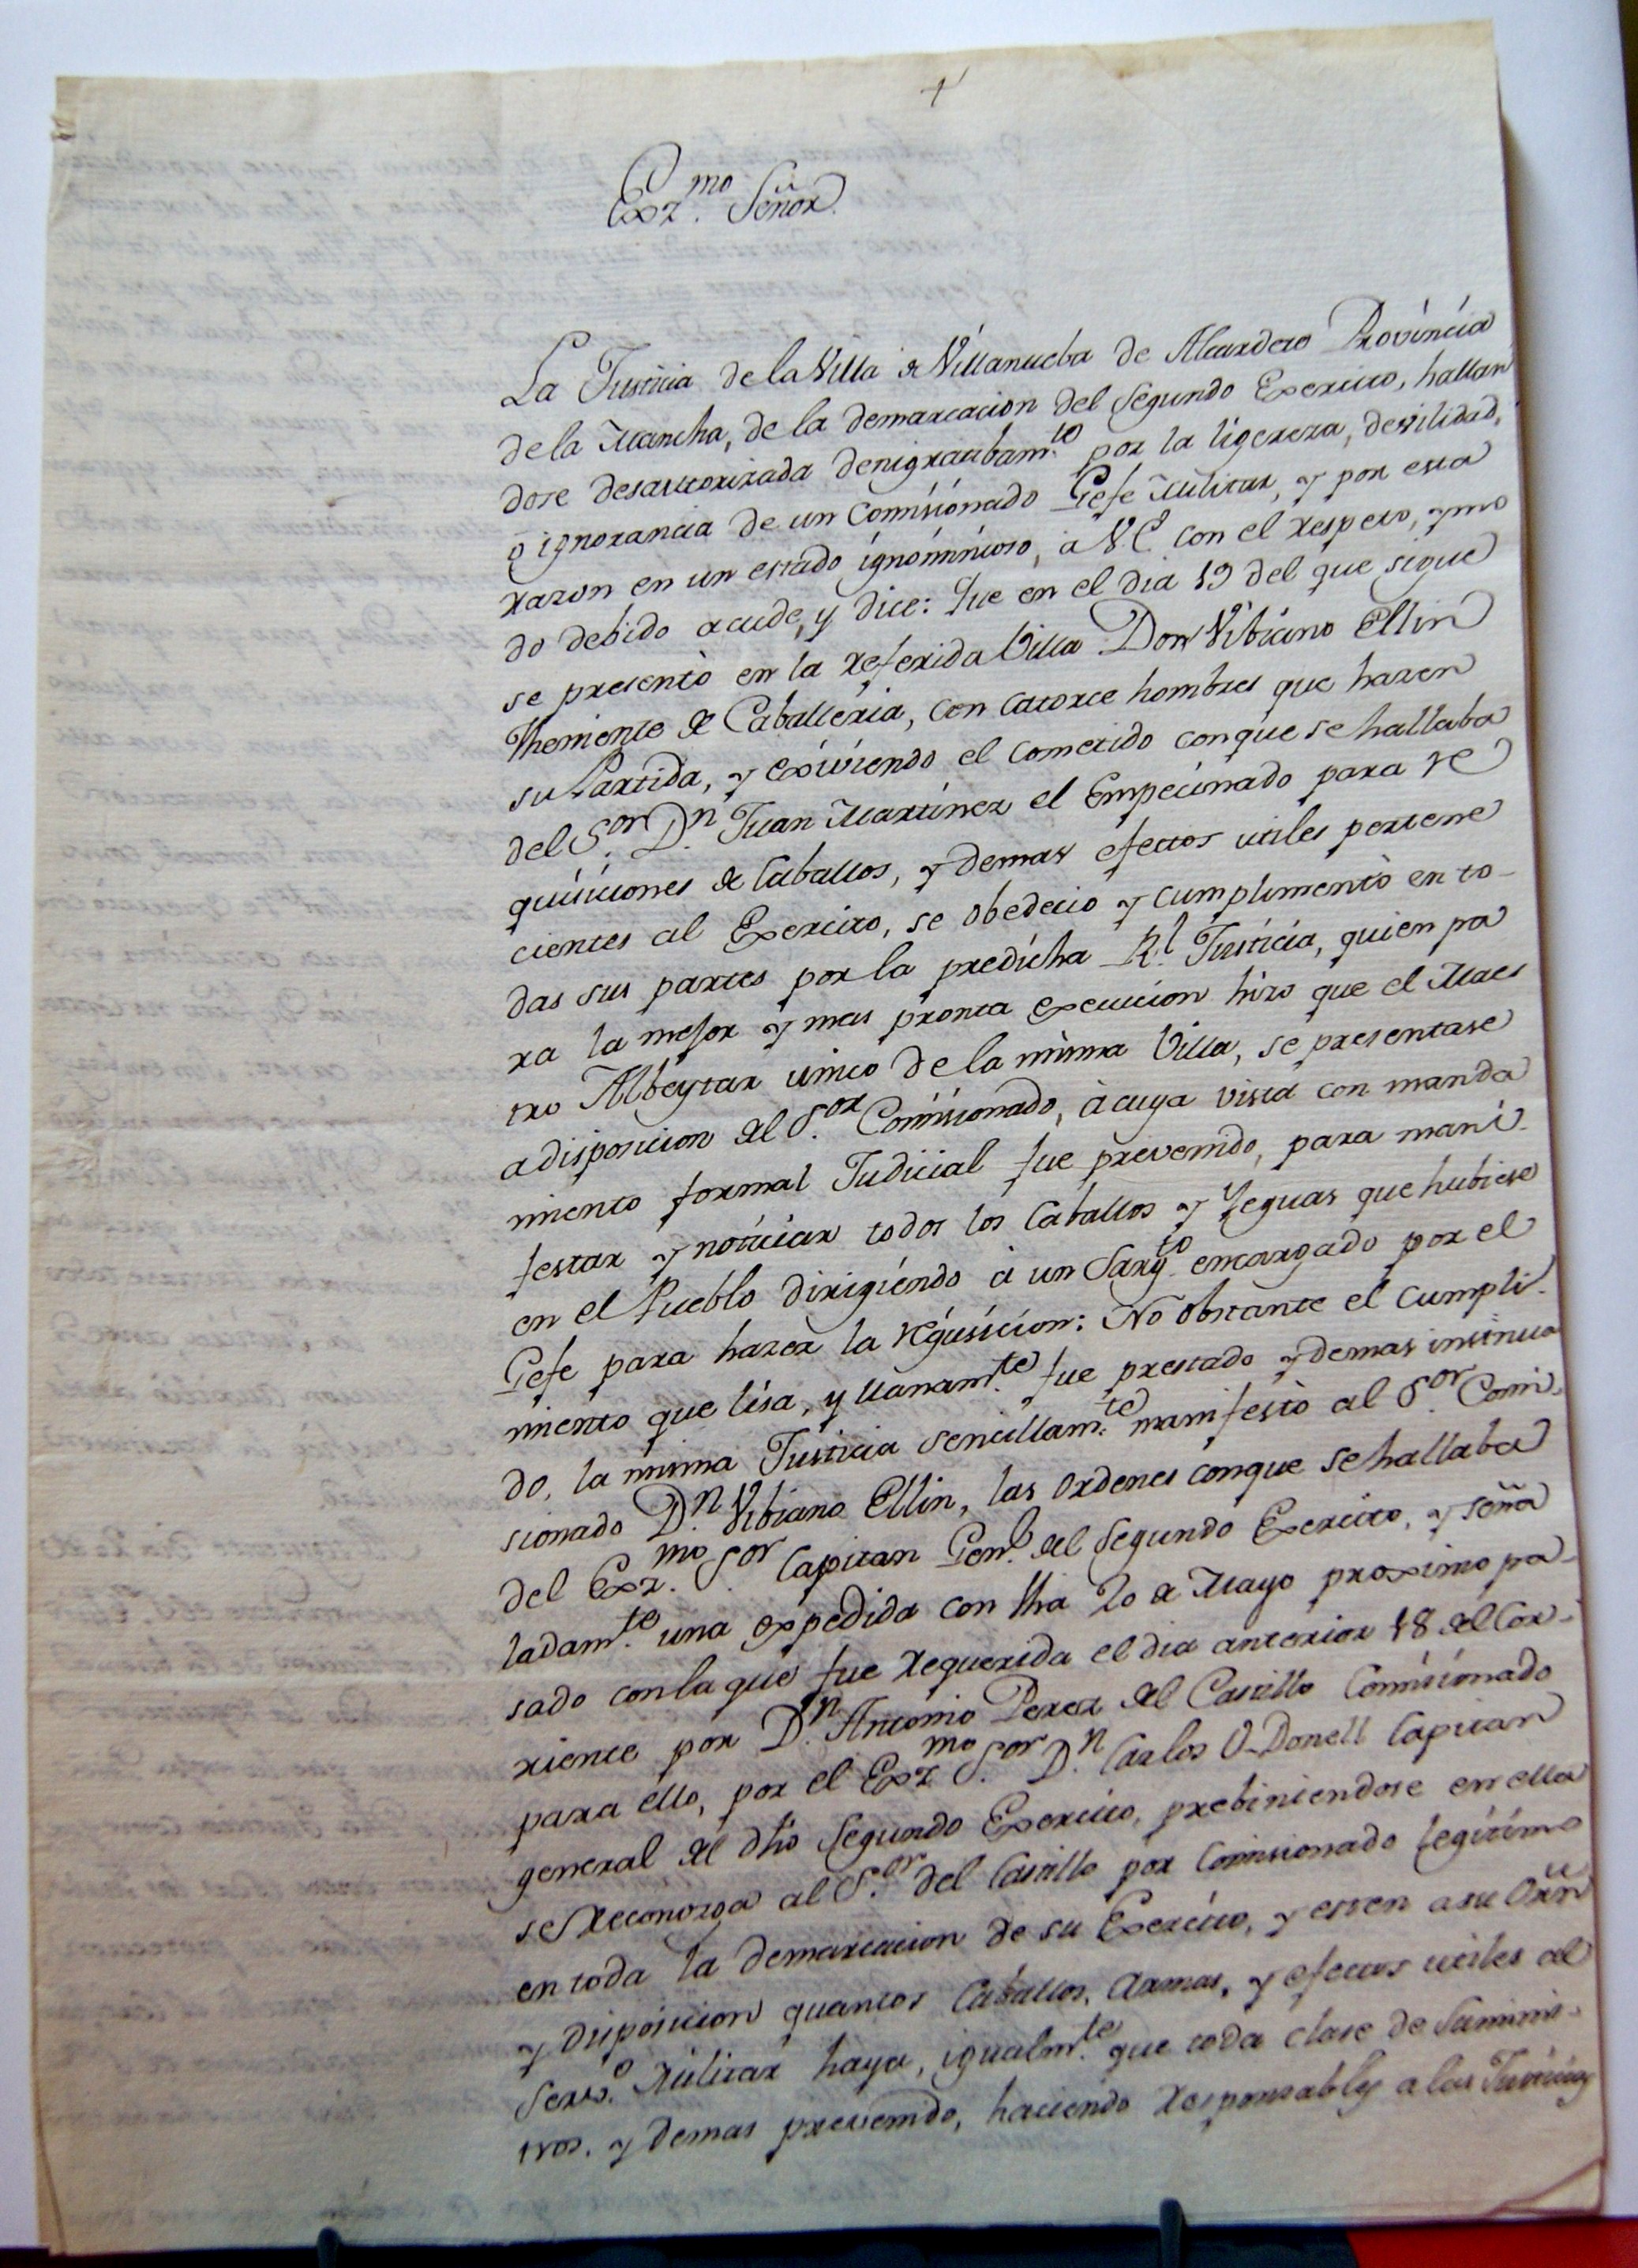 +
Exmo. Señor.
La Justicia de la Villa de Villanueba de Alcardete Provincia
de la Mancha, de la demarcacion del Segundo Exercito, hallan
dose desautorizada denigratibamte. por la ligereza, devilidad,
o ignorancia de un Comisionado Gefe Militar, y por esta
razon en un estado ignominioso, à V.E. con el respeto, y mo
do debido acude, y dice: Que en el dia 19 del que sigue
se presentò en la referida Villa Don Vibiano Ellin
Theniente de Caballeria, con catorce hombres que hazen
su Partida, y exiviendo el cometido conque se hallaba
del Sor. Dn. Juan Martinez el Empecinado para re
quisiciones de Caballos, y demas efectos utiles pertene
cientes al Exercito, se obedecio y cumplimentò en to-
das sus partes por la predicha Rl. Justicia, quien pa
ra la mejor y mas pronta execucion hizo que el Maes
tro Albeytar unico de la misma Villa, se presentase
a disposicion del Sor. Comisionado, à cuya vista con manda
miento formal Judicial fue prevenido, para mani-
festar y noticiar todos los Caballos y Yeguas que hubiese
en el Pueblo dirigiendo à un Sargto. encargado por el
Gefe para hazer la requsicion: No obstante el cumpli-
miento que lisa, y llanamte. fue prestado y demas insinua
do, la misma Justicia sencillamte. manifestò al Sor. Comi-
sionado Dn. Vibiano Ellin, las ordenes conque se hallaba
del Exmo. Sor. Capitan Genl. del Segundo Exercito, y seña
ladamte. una expedida con fha 20 de Mayo proximo pa-
sado con la que fue requerida el dia anterior 18 del Cor-
riente por Dn. Antonio Perez del Castillo Comisionado
para ello, por el Exmo. Sor. Dn. Carlos O-Donell Capitan
general del dho Segundo Exercito, prebiniendose en ella
se reconozca al Sor. del Castillo por Comisionado legitimo
en toda la demarcacion de su Exercito, y esten a su Orñ
y disposicion quantos Caballos, Armas, y efectos utiles al
Servo. Militar haya, igualmte. que toda clase de Suminis-
tros. y demas prevenido, haciendo responsables a las Justicias